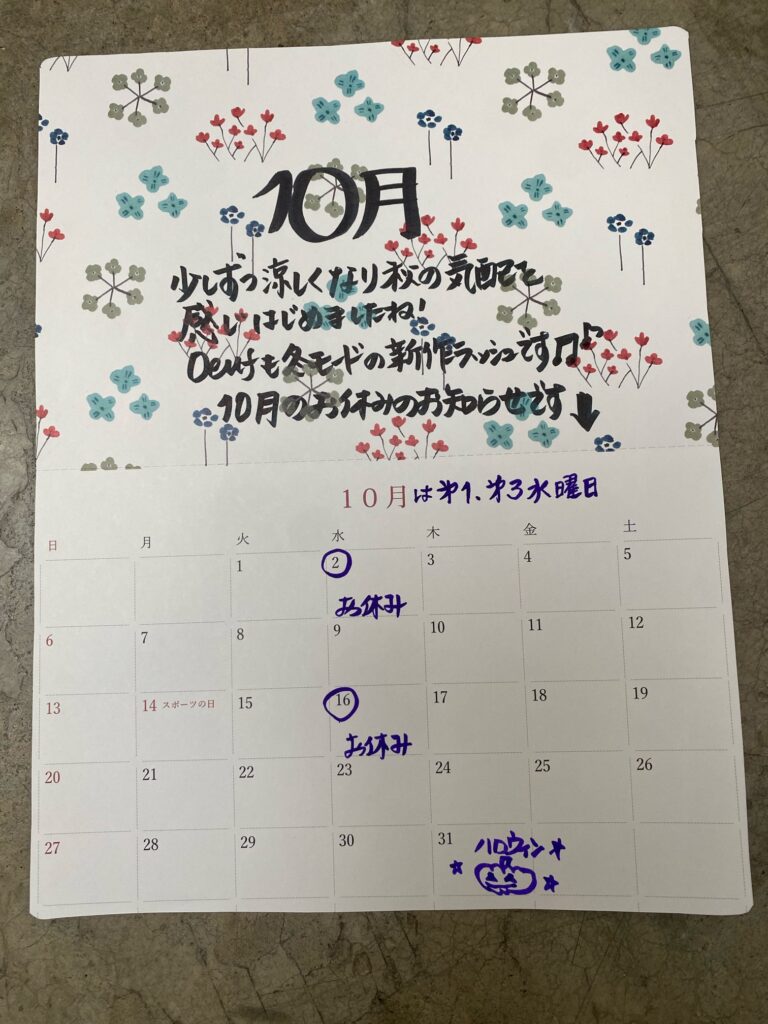 10月
少しずつ涼しくなり秋の気配を
感じはじめましたね!
Oeufも冬モードの新作ラッシュです♫♪
10月のお休みのお知らせです⬇
10月は第1、第3水曜日
日 月 火 水 木 金 土
1 2 3 4 5
お休み
6 7 8 9 10 11 12
13 14 スポーツの日 15 16 17 18 19
お休み
20 21 22 23 24 25 26
27 28 29 30 31 ハロウィン